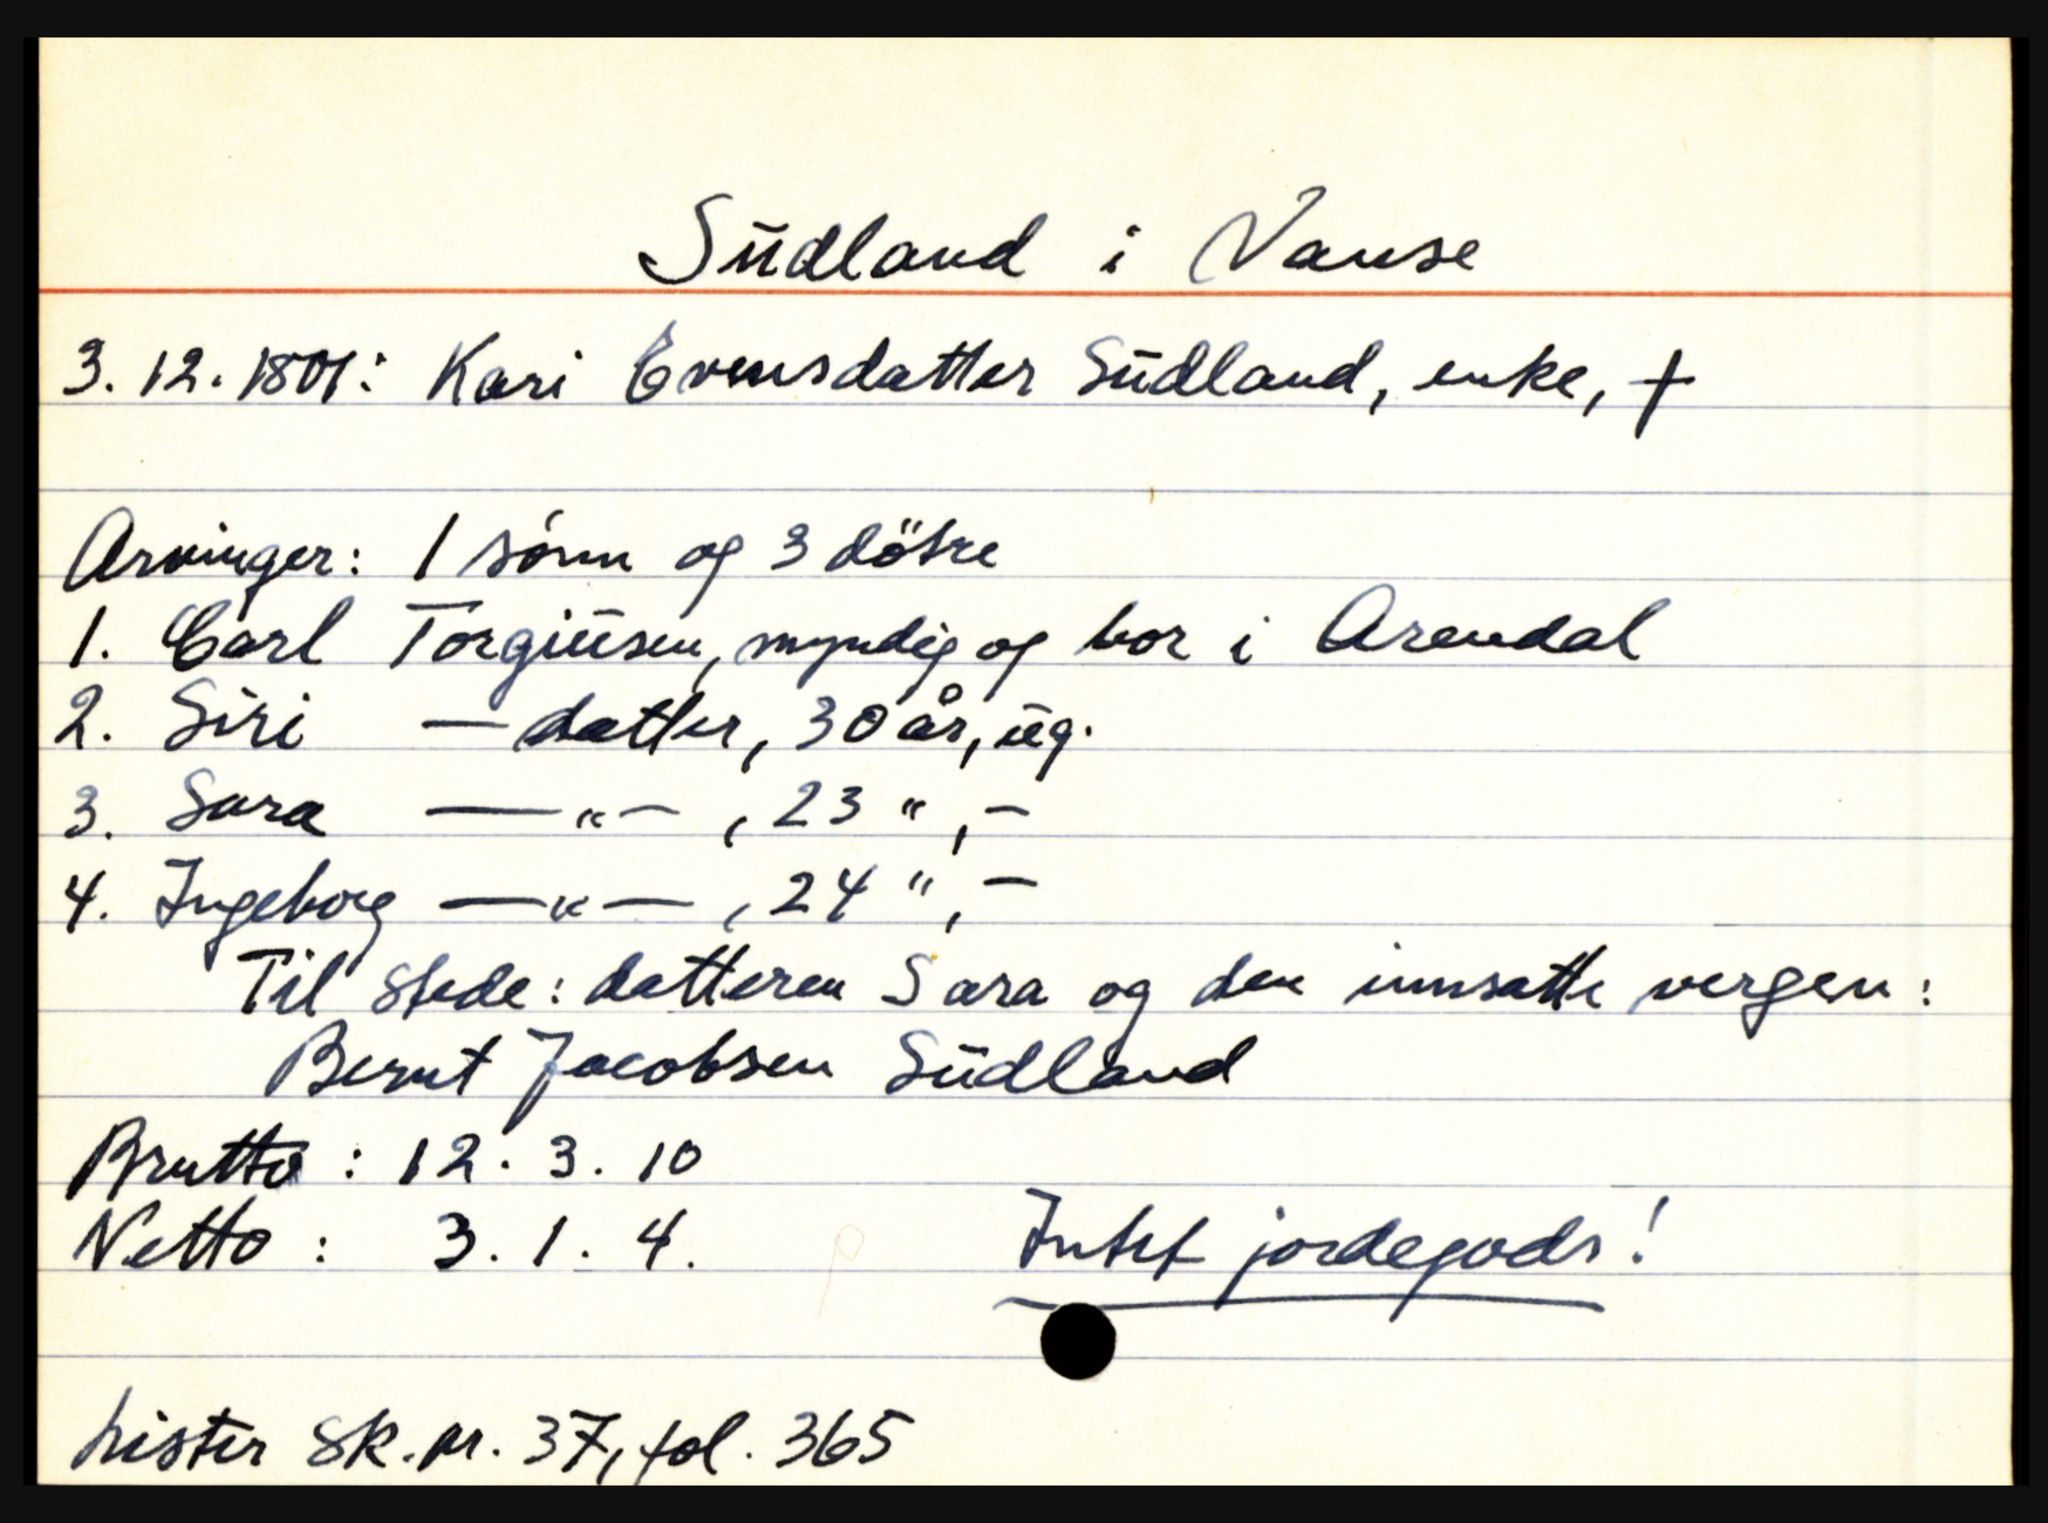 Sūdland i Vanse
3. 12. 1801: Kari Evensdatter Sūdland, enke, †
Arvinger: 1 sónn og 3 dötre
1. Carl Torgiūsen, myndig og bor i Arendal
2. Siri — datter, 30 år, ūg.
3. Sara — " — , 23 " , —
4. Ingeborg — " — , 24 " , —
Til stede: datteren Sara og den innsatte vergen:
Bernt Jacobsen Sūdland
Brutto : 12. 3. 10
Netto : 3. 1. 4. Intet jordegods!
Lister sk. pr. 37, fol. 365